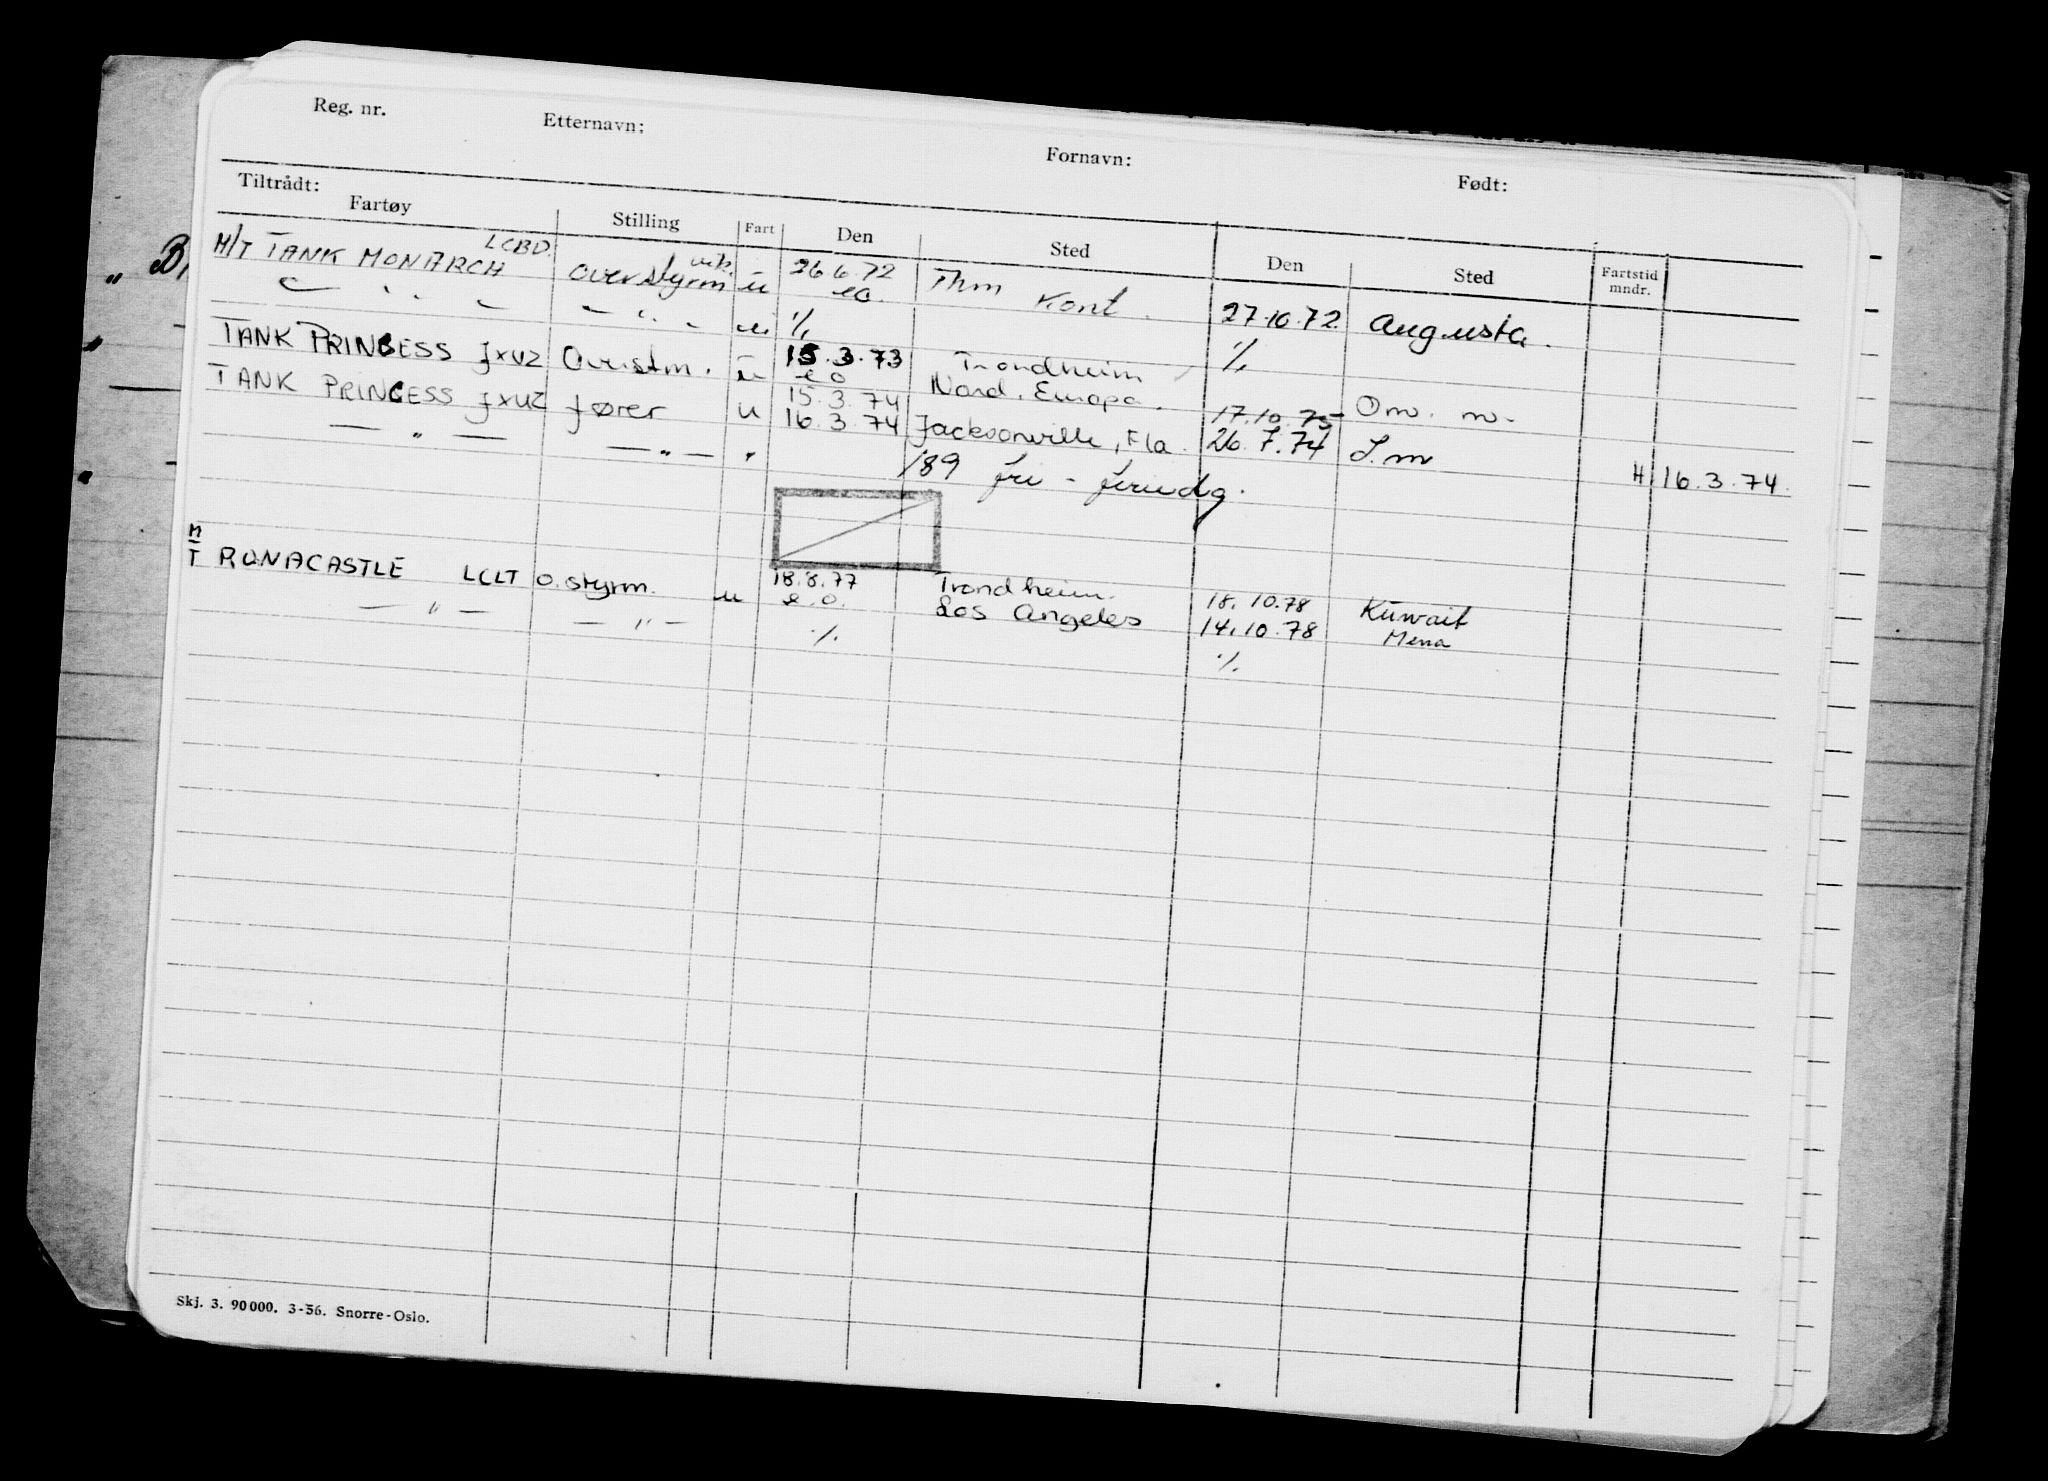 Reg. nr. Etternavn: Fornavn: Født:
Tiltrådt:
Fartøy Stilling Fart Den Sted Den Sted Fartstid mndr.
M/T TANK MONARCH LCBD. overstyrm vik. u 26.6.72 Thm
e.o. Kont. 27.10.72 Augusta.
— " — — " — u. ·/. ·/.
TANK PRINCESS JXUZ Overstm. u 15.3.73 Trondheim
e o Nord. Europa.
TANK PRINCESS JXUZ fører u 15.3.74 17.10.73 Om. m.
16.3.74 Jacksonville, Fla. 26.7.74 S.m
— " — — " — " 189 fri - feriedg. H 16.3.74.
M/T RONACASTLE LCLT O.styrm. u 18.8.77 Trondheim.
e.o. Los Angeles 18.10.78 Kuwait
— " — — " — ·/. 14.10.78 Mena
·/.
Skj. 3. 90 000. 3-56. Snorre-Oslo.